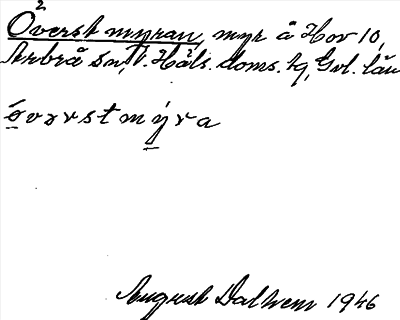 Överst myran, myr å Hov 10,
Arbrå sn, Häls. doms. hg, Gvl. län
ö́vərstmýra
August Dalhem 1946